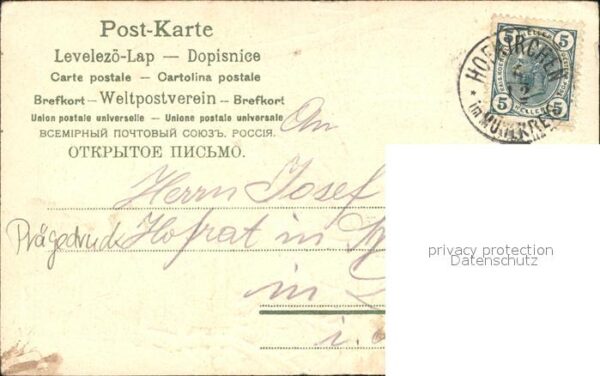 Post-Karte
Levelezö-Lap — Dopisnice
Carte postale — Cartolina postale
Brefkort — Weltpostverein — Brefkort
Union postale universelle — Unione postale universale
ВСЕМІРНЫЙ ПОЧТОВЫЙ СОЮЗЪ. РОССІЯ.
ОТКРЫТОЕ ПИСЬМО.
5 5
HELLER
5 HELLER 5
HOFKIRCHEN
im MÜHLKREIS
An
Herrn Josef
Prägedruck Hofrat in
in
i.
privacy protection
Datenschutz